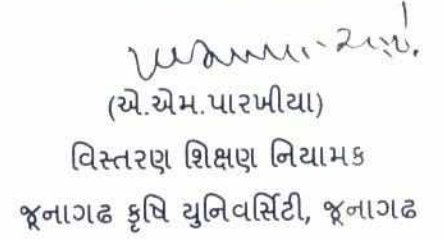 (એ.એમ.પારખીયા)
વિસ્તરણ શિક્ષણ નિયામક
જૂનાગઢ કૃષિ યુનિવર્સિટી, જૂનાગઢ